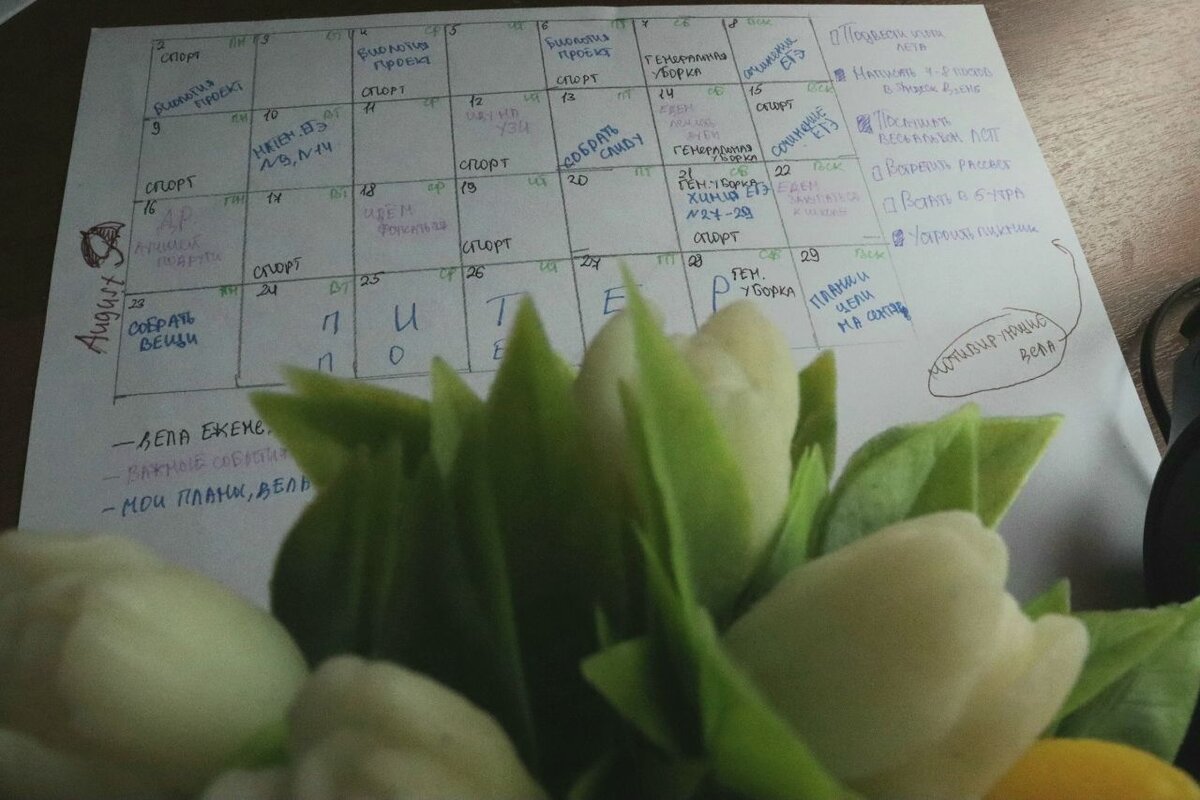 2 ПН
СПОРТ
БИОЛОГИЯ
ПРОЕКТ
3 ВТ
4 СР
БИОЛОГИЯ
ПРОЕКТ
СПОРТ
5 ЧТ
6 ПТ
БИОЛОГИЯ
ПРОЕКТ
СПОРТ
7 СБ
ГЕНЕРАЛЬНАЯ
УБОРКА
8 ВСК
СОЧИНЕНИЕ
ЕГЭ
9 ПН
СПОРТ
10 ВТ
№9, №14
11 СР
12 ЧТ
ИДУ НА
УЗИ
СПОРТ
13 ПТ
СОБРАТЬ
14 СБ
ЕДЕМ
ГЕНЕРАЛЬНАЯ
УБОРКА
15 ВСК
СПОРТ
СОЧИНЕНИЕ
ЕГЭ
16 ПН
ДР
ЛУЧШЕЙ
ПОДРУГИ
17 ВТ
СПОРТ
18 СР
ИДЁМ
19 ЧТ
СПОРТ
20 ПТ
21 СБ
ГЕН. УБОРКА
ХИМИЯ ЕГЭ
№27-29
СПОРТ
22 ВСК
ЕДЕМ
ЗАКУПАТЬСЯ
К ШКОЛЕ
23 ПН
СОБРАТЬ
ВЕЩИ
24 ВТ
25 СР
26 ЧТ
27 ПТ
28 СБ
П И Т Е Р
П О Е
ГЕН.
УБОРКА
29 ВСК
ПЛАНЫ И
ЦЕЛИ
НА
ПОДВЕСТИ ИТОГИ
ЛЕТА
НАПИСАТЬ 7-8 ПОСТОВ
В ЯНДЕКС ДЗЕНЕ
ПОСЛУШАТЬ
ВЕСЬ АЛЬБОМ ЛСП
ВСТРЕТИТЬ РАССВЕТ
ВСТАТЬ В 5 УТРА
УСТРОИТЬ ПИКНИК
МОТИВИРУЮЩИЕ
ДЕЛА
— ДЕЛА ЕЖЕНЕ
— ВАЖНЫЕ СОБЫТИЯ
— МОИ ПЛАНЫ, ДЕЛА